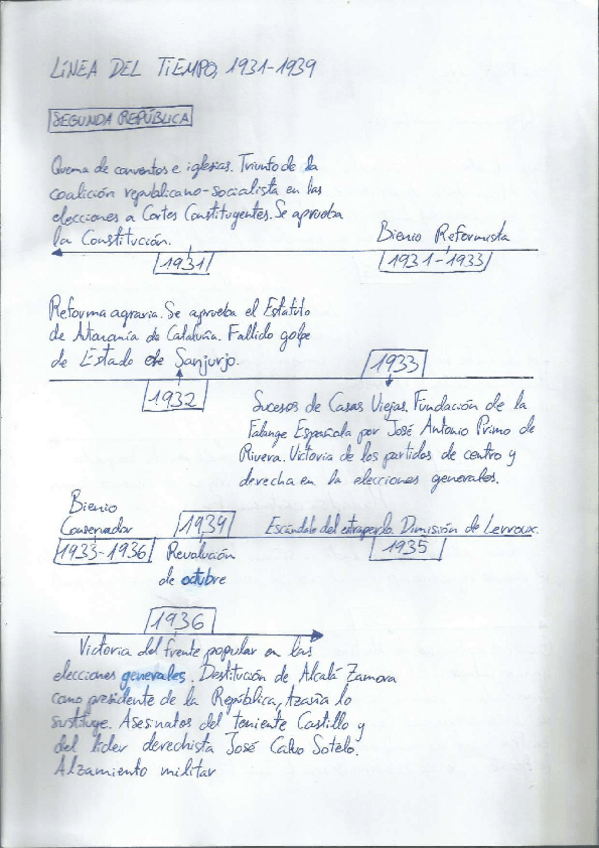 LÍNEA DEL TIEMPO, 1931-1939
SEGUNDA REPÚBLICA
Quema de conventos e iglesias. Triunfo de la
coalición republicano-socialista en las
elecciones a Cortes Constituyentes. Se aprueba
la Constitución.
Bienio Reformista
1931
1931-1933
Reforma agraria. Se aprueba el Estatuto
de Autonomía de Cataluña. Fallido golpe
de Estado de Sanjurjo.
1933
1932
Sucesos de Casas Viejas. Fundación de la
Falange Española por José Antonio Primo de
Rivera. Victoria de los partidos de centro y
derecha en la elecciones generales.
Bienio
Conservador
1939
Escándalo del estraperlo. Dimisión de Lerroux.
1933-1936
Revolución
de octubre
1935
1936
Victoria del frente popular en las
elecciones generales. Destitución de Alcalá Zamora
como presidente de la República, Azaña lo
sustituye. Asesinatos del teniente Castillo y
del líder derechista José Calvo Sotelo.
Alzamiento militar